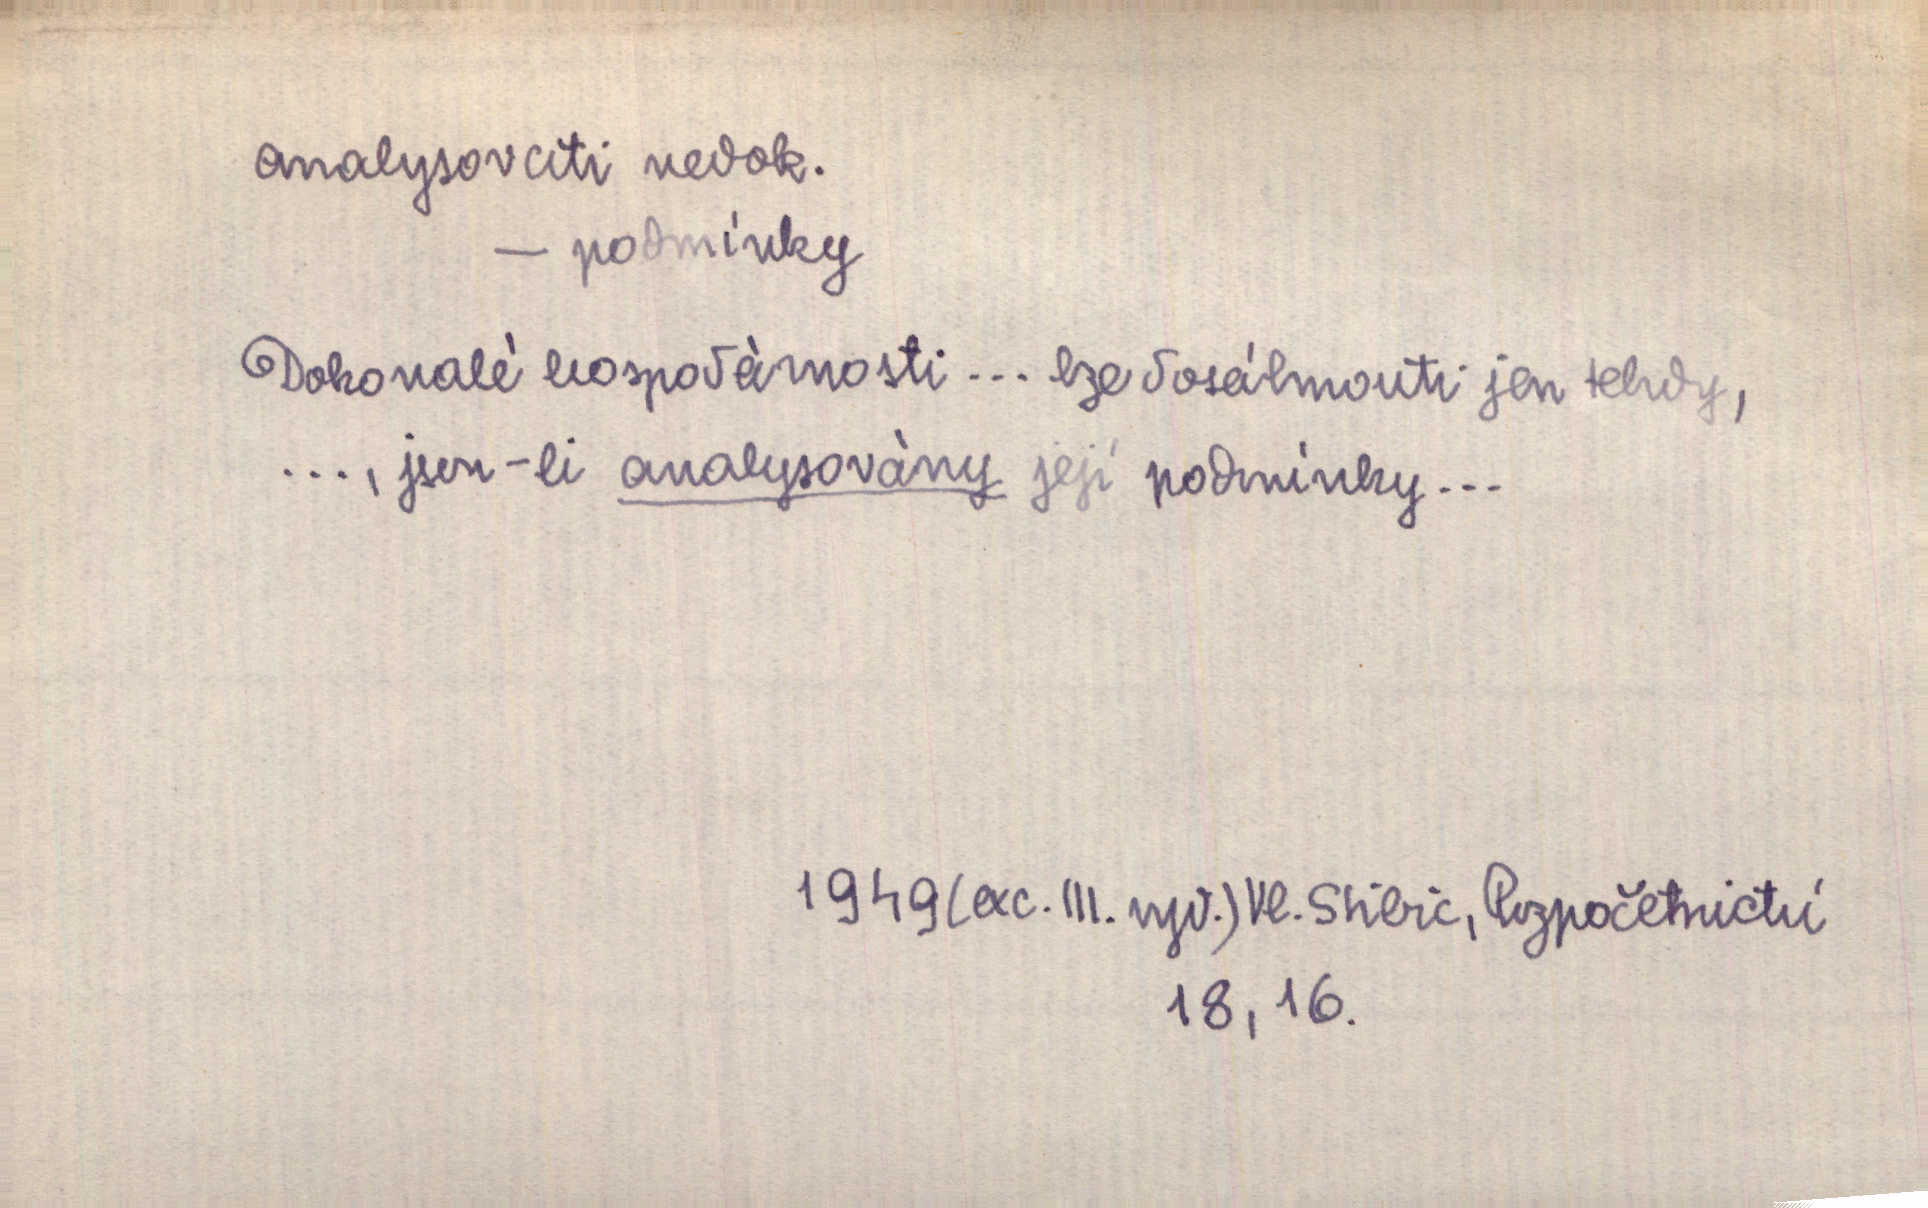 analysovati nedok.
— podmínky
Dokonalé hospodárnosti ... lze dosáhnouti jen tehdy,
..., jsou-li analysovány její podmínky ...
1949 (exc. III. vyd.) Vl. Stibic, Rozpočetnictví
18, 16.